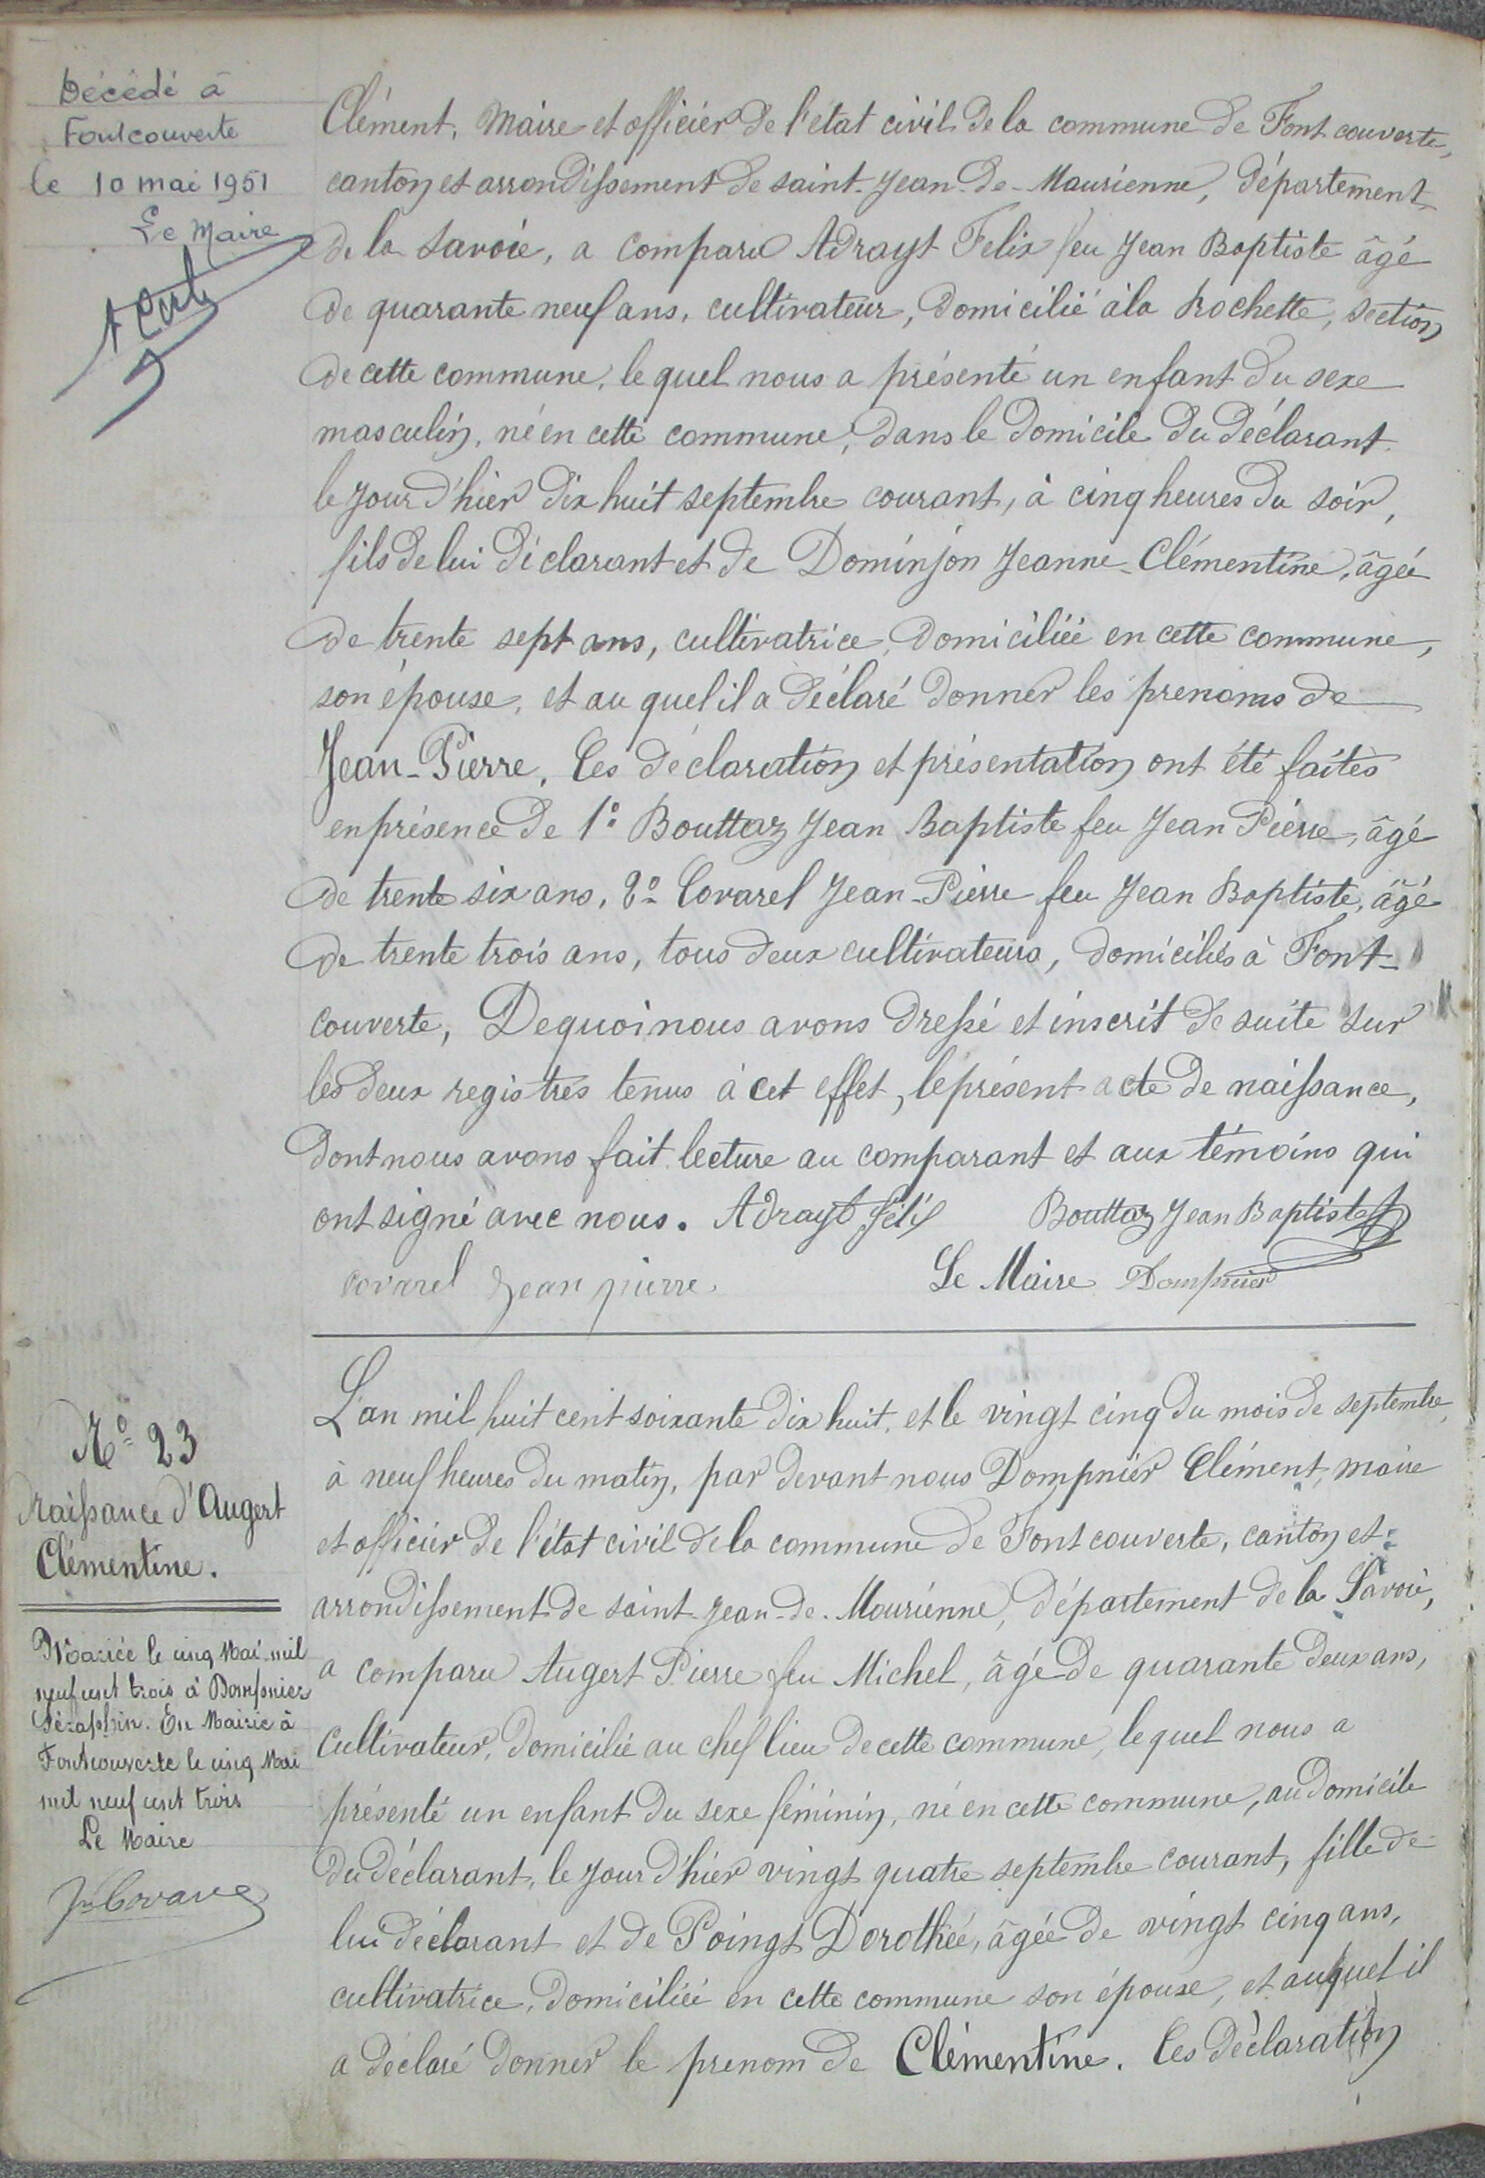 Décédé à
Fontcouverte
le 10 mai 1951
Le Maire
Clément, Maire et officier de l'état civil de la commune de Fontcouverte,
canton et arrondissement de saint-Jean-de-Maurienne, département
de la Savoie, a comparu Adrayt Felix feu Jean Baptiste âgé
de quarante neuf ans, cultivateur, domicilié à la Rochette, section
de cette commune, le quel nous a présenté un enfant du sexe
masculin, né en cette commune, dans le domicile du déclarant
le jour d'hier dix huit septembre courant, à cinq heures du soir,
fils de lui déclarant et de Dominjon Jeanne-Clémentine, âgée
de trente sept ans, cultivatrice, domiciliée en cette commune,
son épouse, et au quel il a déclaré donner les prenoms de
Jean-Pierre. Ces déclaration et présentation ont été faites
en présence de 1º Bouttaz Jean Baptiste feu Jean Pierre, âgé
de trente six ans, 2º Covarel Jean-Pierre feu Jean Baptiste, âgé
de trente trois ans, tous deux cultivateurs, domiciliés à Font-
couverte, De quoi nous avons dressé et inscrit de suite sur
les deux registres tenus à cet effet, le présent acte de naissance,
dont nous avons fait lecture au comparant et aux témoins qui
ont signé avec nous. Adrayt félix Bouttaz Jean Baptiste
covarel Jean pierre Le Maire Dompnier
Nº 23
Naissance d'Augert
Clémentine.
Mariée le cinq Mai mil
neuf cent trois à Dompnier
Séraphin. En Mairie à
Fontcouverte le cinq Mai
mil neuf cent trois
Le Maire
Jn Covarel
L'an mil huit cent soixante dix huit, et le vingt cinq du mois de septembre,
à neuf heures du matin, par devant nous Dompnier Clément, maire
et officier de l'état civil de la commune de Fontcouverte, canton et
arrondissement de saint-Jean-de-Maurienne, département de la Savoie,
a comparu Augert Pierre feu Michel, âgé de quarante deux ans,
Cultivateur, domicilié au chef lieu de cette commune, le quel nous a
présenté un enfant du sexe féminin, né en cette commune, au domicile
du déclarant, le jour d'hier vingt quatre septembre courant, fille de
lui déclarant et de Poingt Dorothée, âgée de vingt cinq ans,
cultivatrice, domiciliée en cette commune son épouse, et auquel il
a déclaré donner le prenom de Clémentine. Ces déclaration